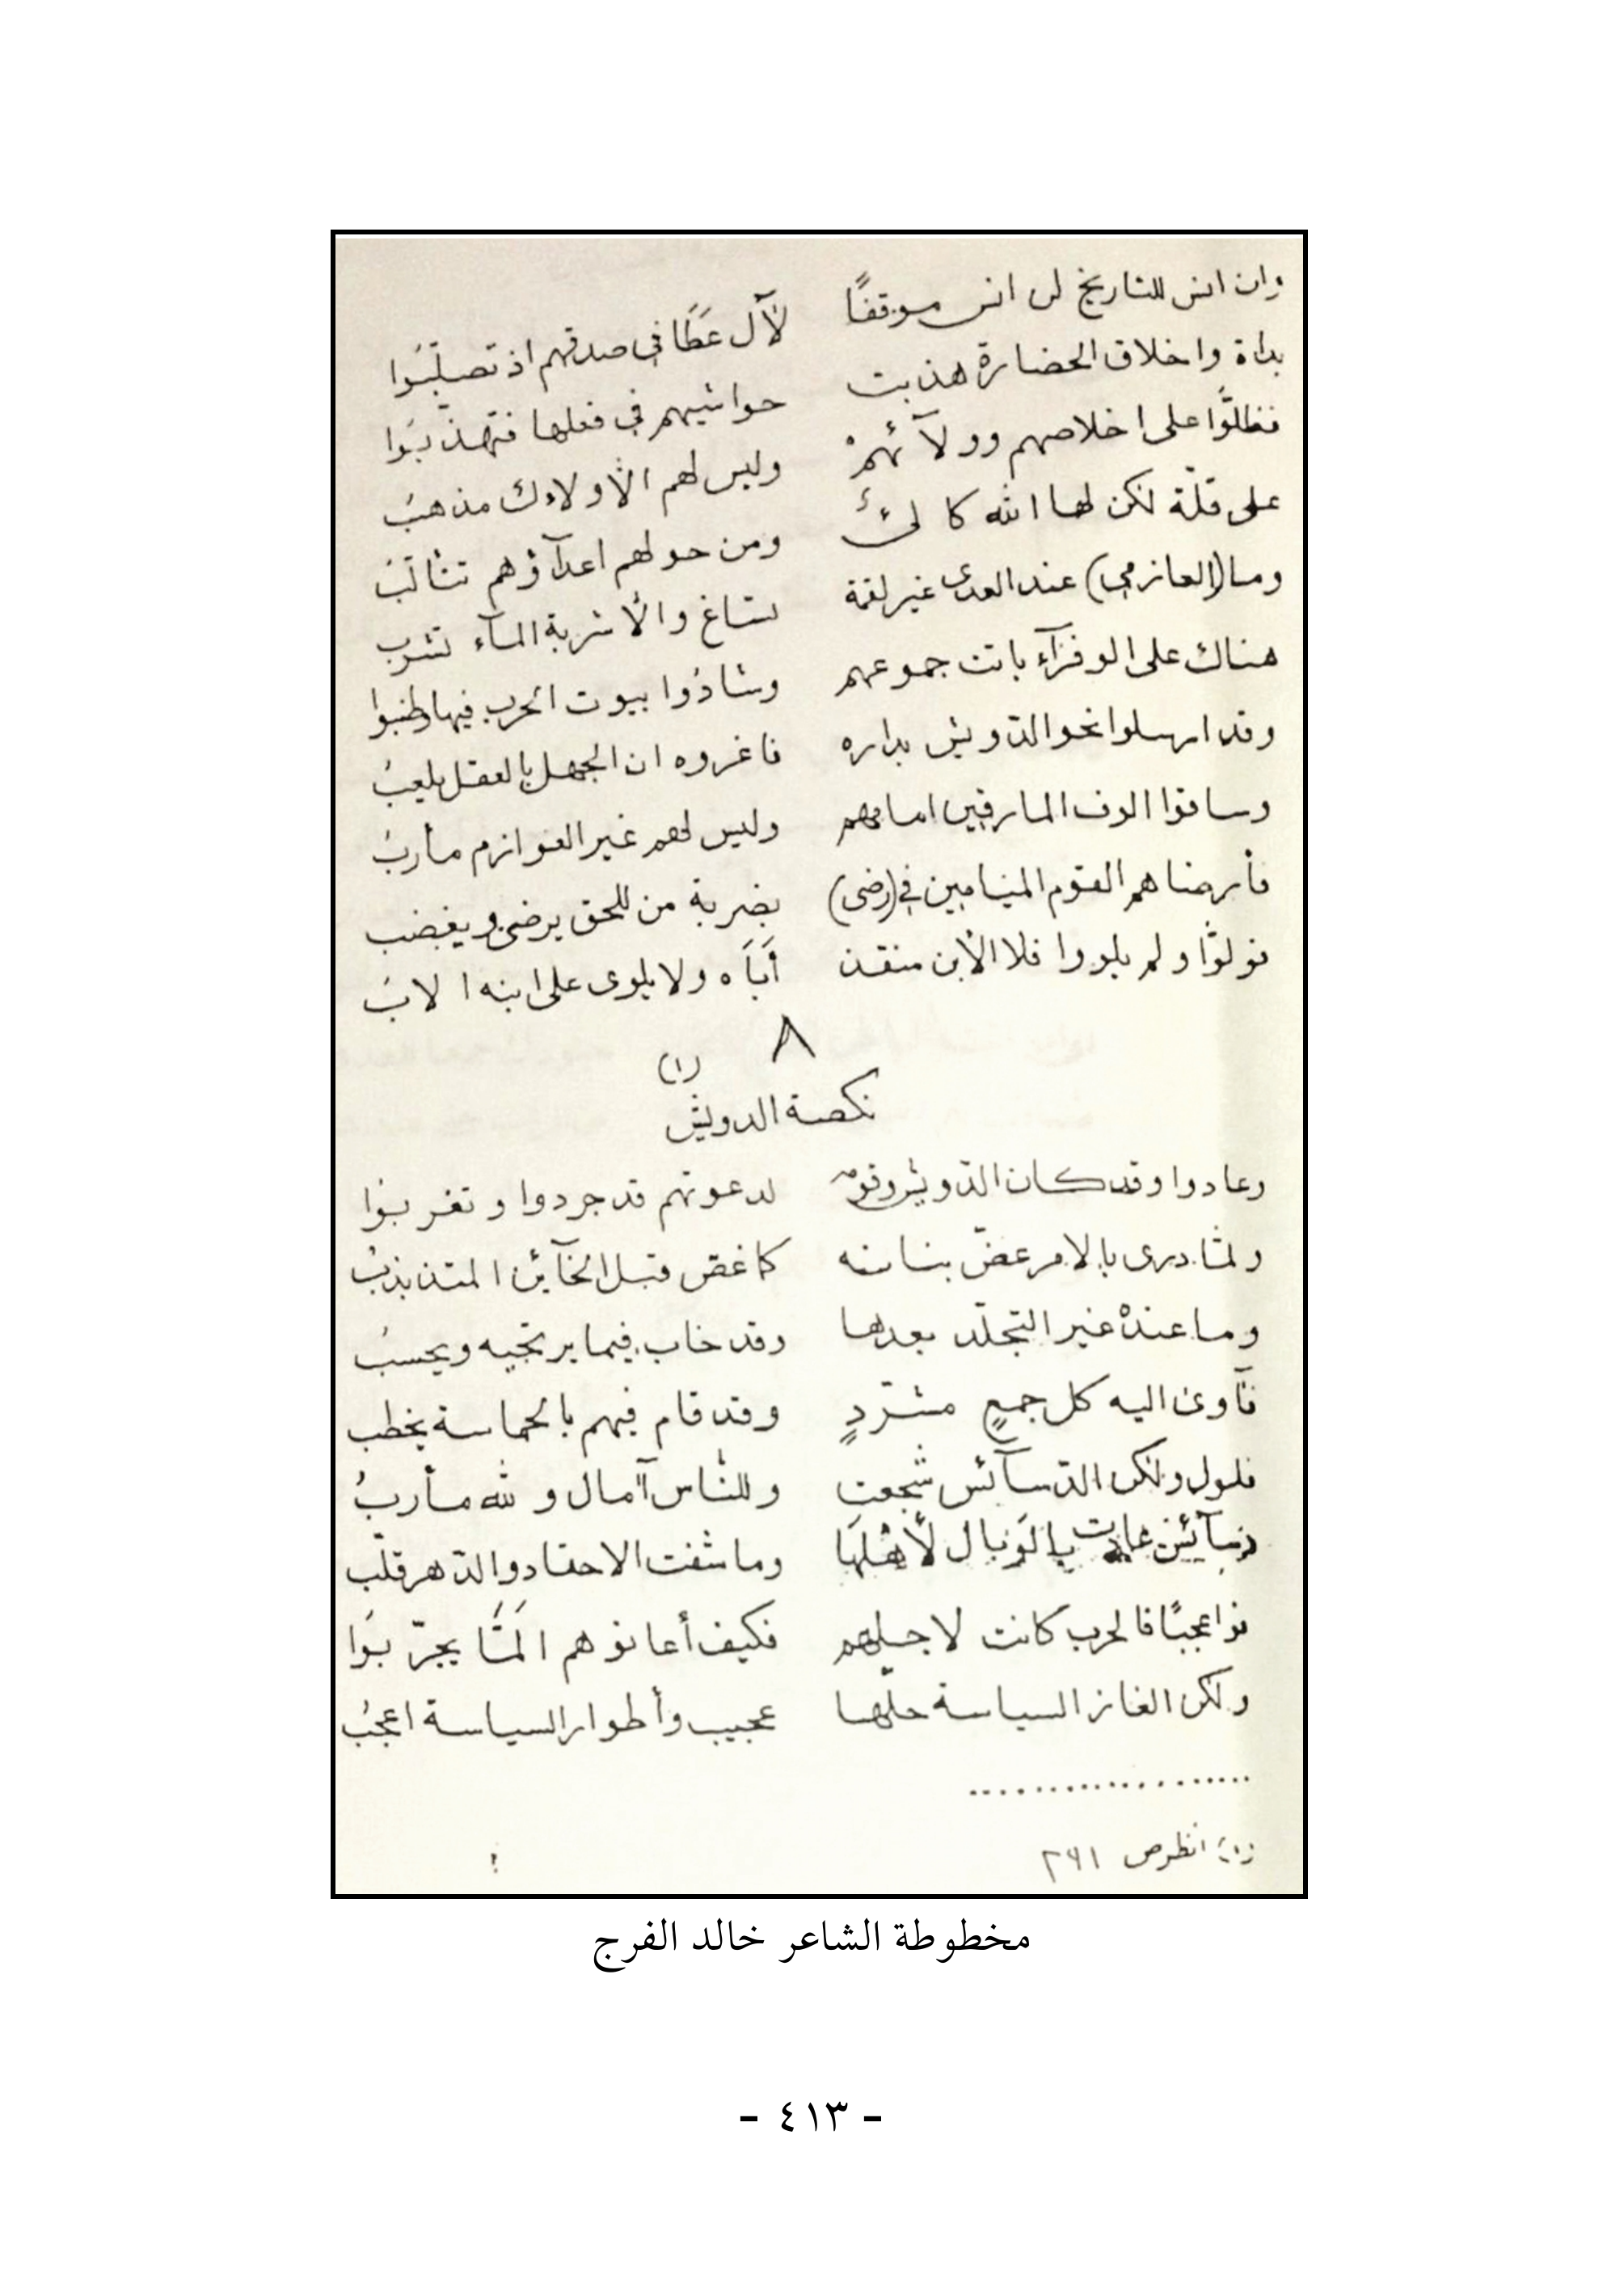 وان انس للتاريخ لن انس موقفًا لآل عَطَا في صدقهم اذ تصلّبَوا
بداة واخلاق الحضارة هذبت حواشيهم في فعلها فتهذّبَوا
فظلوّا على اخلاصهم وولآئهمْ وليس لهم الاّ اولاءك مذهبُ
على قلّة لكن لها الله كالئٌ ومن حولهم اعدآؤهم تتألّبُ
وما (العازمي) عند العدى غير لقمة تساغ والاّ شربة المآء تشرب
هناك على الوفرآء باتت جموعهم وشادُوا بيوت الحرب فيها وطنبوا
وقد ارسلوا نحو الدّويش بداره فاغروه ان الجهل بالعقل يلعبُ
وساقوا الوف المارقين امامهم وليس لهم غير العوازم مأربُ
فأرضاهم القوم الميامين في (رضى) بضربة من للحق يرضى ويغضب
فولوّا ولم يلووا فلا الأبن منقذ أَبَاَه ولا يلوى على ابنه الابُ
٨
(١)
نكصة الدويش
وعادوا وقد كان الدّويش وقومه لدعوتهم قد جردوا وتغربوُا
ولمّا درى بالامر عضّ بنانه كما عض قبل الخآئن المتذبذبُ
وما عندهْ غير التجلّد بعدها وقد خاب فيما يرتجيه ويحسبُ
فآوى اليه كل جمعٍ مشرّدٍ وقد قام فيهم بالحماسة يخطب
فلول ولكن الدّسآئس شجّعت وللنّاس آمال ولله مأربُ
دسآئس عادت بالوَبال لأهْلهَا وما شفت الاحقاد والدّهر قلّب
فواعجبًا فالحرب كانت لاجلهم فكيف أعانوهم المَّا يجرّبوَا
ولكن الغاز السياسة حلّها عجيب وأطوار السياسة اعجبُ
....................
(١) انظر ص ٢٦١
مخطوطة الشاعر خالد الفرج
- ٤١٣ -